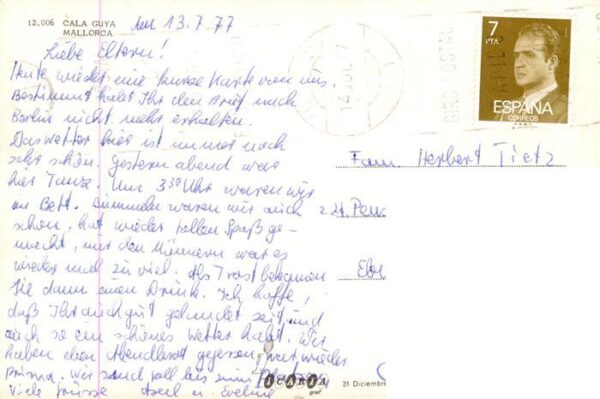 12.006 CALA GUYA
MALLORCA
den 13.7.77
Liebe Eltern!
Heute wieder eine kurze Karte von uns.
Bestimmt habt Ihr den Brief nach
Berlin nicht mehr erhalten.
Das Wetter hier ist immer noch
sehr schön. Gestern abend war
hier Tanz. Um 3 30 Uhr waren wir
im Bett. Bummeln waren wir auch
schon, hat wieder tollen Spaß ge-
macht, nur den Männern war es
wieder mal zu viel. Als Trost bekamen
Sie dann einen Drink. Ich hoffe,
daß Ihr auch gut gesund seit und
auch so ein schönes Wetter habt. Wir
haben eben Abendbrot gegessen, war wieder
prima. Wir sind voll bis zum
Viele Grüsse Axel u. Eveline
7
PTA
ESPAÑA
CORREOS
Fam. Herbert Tietz
31 Diciembre